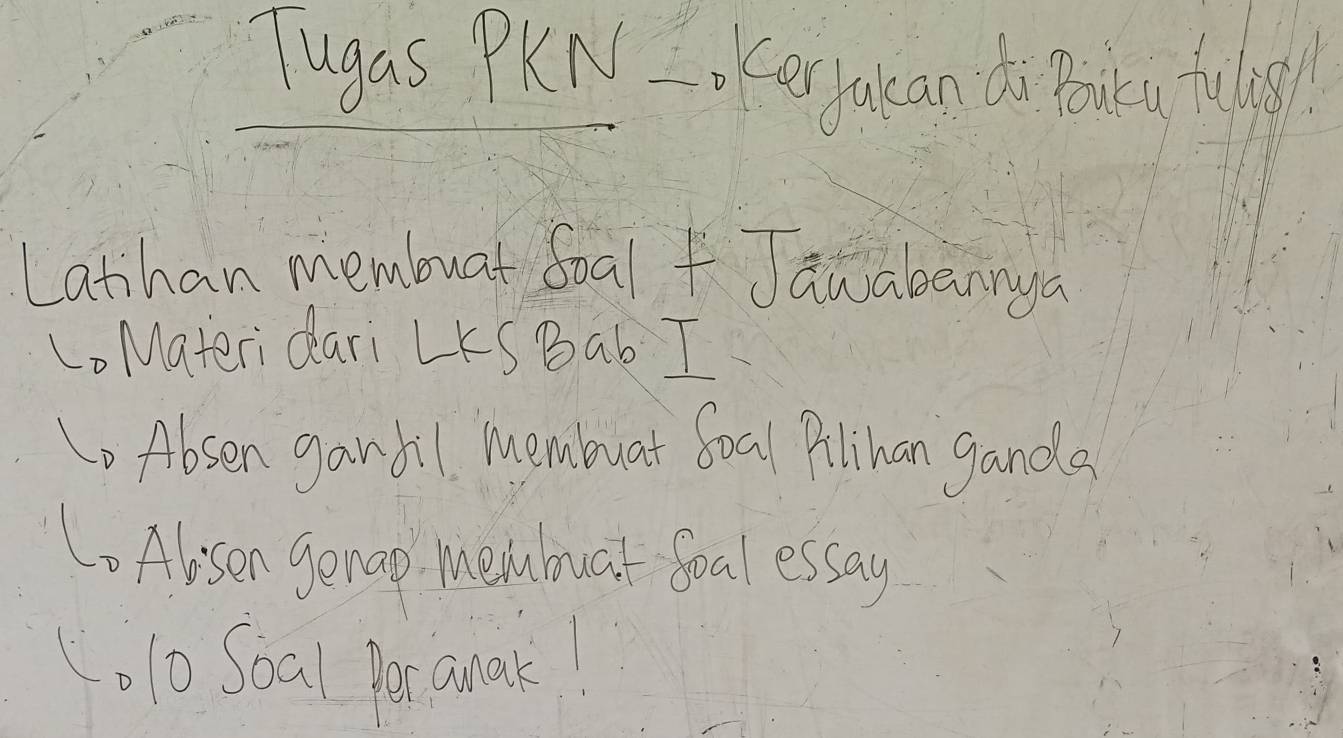 Tugas PKN → Kerjakan di Buku tulis!!
Latihan membuat Soal + Jawabannya
↳ Materi dari LKS Bab I
↳ Absen ganjil membuat Soal Pilihan ganda
↳ Absen genap membuat Soal essay
↳ 10 Soal Per anak!